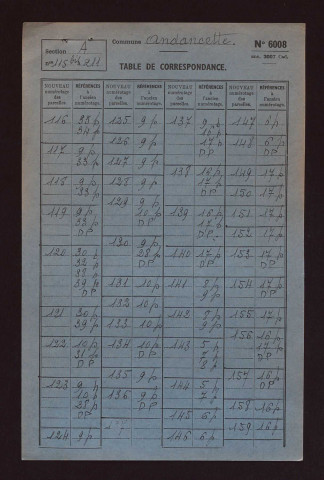 Section A
Commune Andancette
N° 6008
TABLE DE CORRESPONDANCE.
NOUVEAU numérotage des parcelles.
RÉFÉRENCES à l'ancien numérotage.
NOUVEAU numérotage des parcelles.
RÉFÉRENCES à l'ancien numérotage.
NOUVEAU numérotage des parcelles.
RÉFÉRENCES à l'ancien numérotage.
NOUVEAU numérotage des parcelles.
RÉFÉRENCES à l'ancien numérotage.
116 33 p
34 p
117 9 p
33 p
118 9 p
33 p
119 9 p
33 p
DP
120 30 p
32 p
33 p
39 p
DP
121 30 p
39 p
122 10 p
31 p
DP
123 9 p
10 p
28 p
DP
124 9 p
125 9 p
126 9 p
127 9 p
128 9 p
129 9 p
10 p
DP
130 9 p
28 p
DP
131 10 p
132 10 p
133 10 p
134 10 p
DP
135 9 p
136 9 p
DP
137 9 p
16 p
17 p
DP
138 16 p
17 p
DP
139 16 p
17 p
DP
140 17 p
DP
141 8 p
9 p
142 8 p
9 p
143 5 p
7 p
8 p
144 5 p
7 p
145 6 p
146 6 p
147 6 p
148 6 p
17 p
DP
149 17 p
150 17 p
151 17 p
152 17 p
153 17 p
DP
154 17 p
155 17 p
156 16 p
17 p
DP
157 16 p
DP
158 16 p
159 16 p